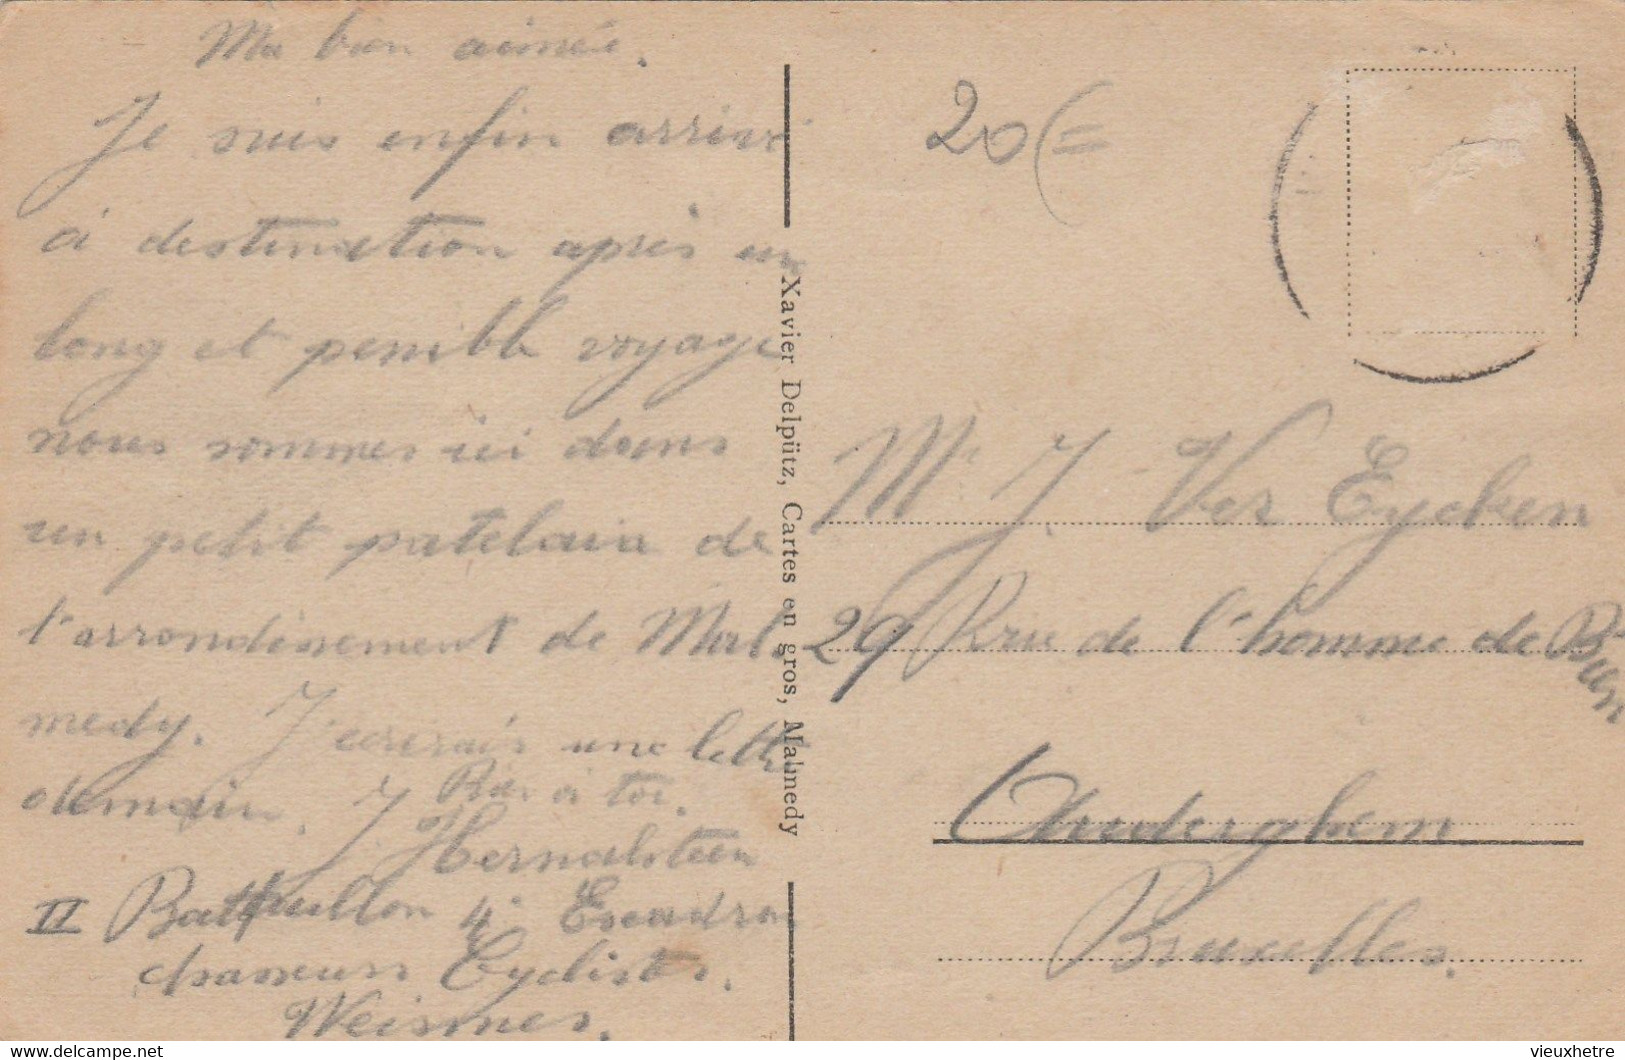 Ma bien aimée.
Je suis enfin arrivé
à destination après un
long et penible voyage
nous sommes ici dans
un petit patelain de
l'arrondissement de Mal
medy. J'ecrerais une lettre
demain. Bien à toi.
J Hernalsteen
II Battaillon 4e Escadron
chasseurs Cyclistes.
Weismes.
Xavier Delpütz, Cartes en gros, Malmedy
20 (=
Mr J. Ver Eycken
29 Rue de l'homme de Bien
Auderghem
Bruxelles.
vieuxhetre